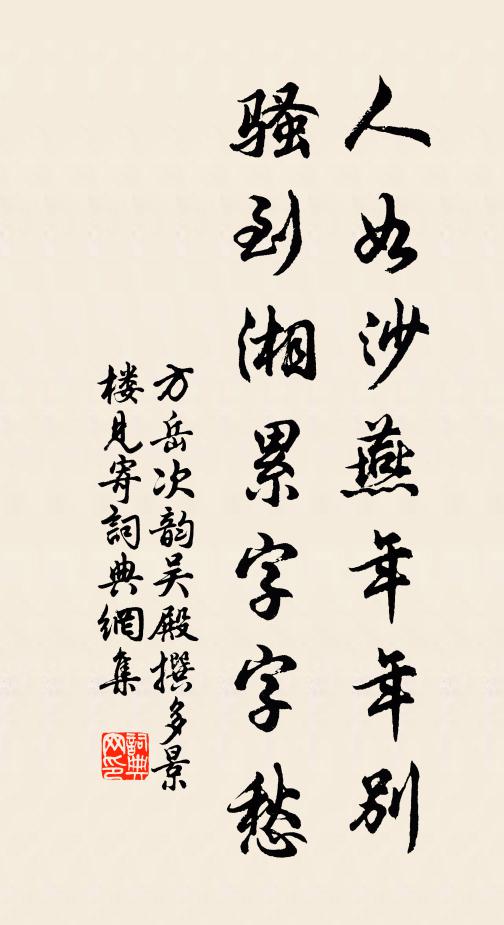 人如沙燕年年别
骚到湘累字字愁
方岳次韵吴殿撰多景
楼见寄詞典網集
詞典网印